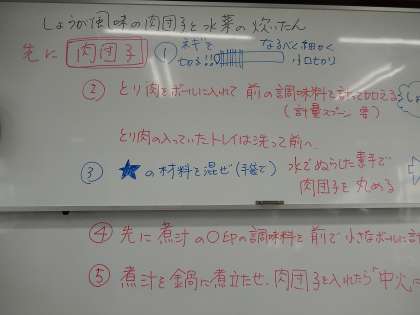 しょうが風味の肉団子と水菜の炊いたん
先に 肉団子 ① ネギを なるべく細かく
切る!! 小口切り
② とり肉をボールに入れて 前の調味料を計って加える
(計量スプーン 要)
とり肉の入っていたトレイは洗って前へ
③ ★の材料を混ぜ(手袋で) 水でぬらした素手で
肉団子を丸める
④ 先に煮汁の○印の調味料を前で小さなボールに計
⑤ 煮汁を鍋に煮立たせ、肉団子を入れたら"中火に